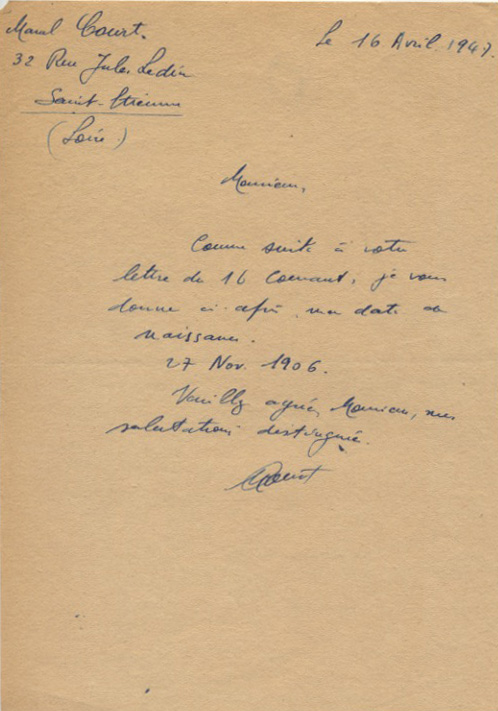 Marcel Court.
Le 16 Avril 1947.
32 Rue Jules Ledin
Saint-Etienne
(Loire)
Monsieur,
Comme suite à votre
lettre du 16 Courant, je vous
donne ci-après ma date de
naissance.
27 Nov. 1906.
Veuillez agréer, Monsieur, mes
salutations distinguées.
Court